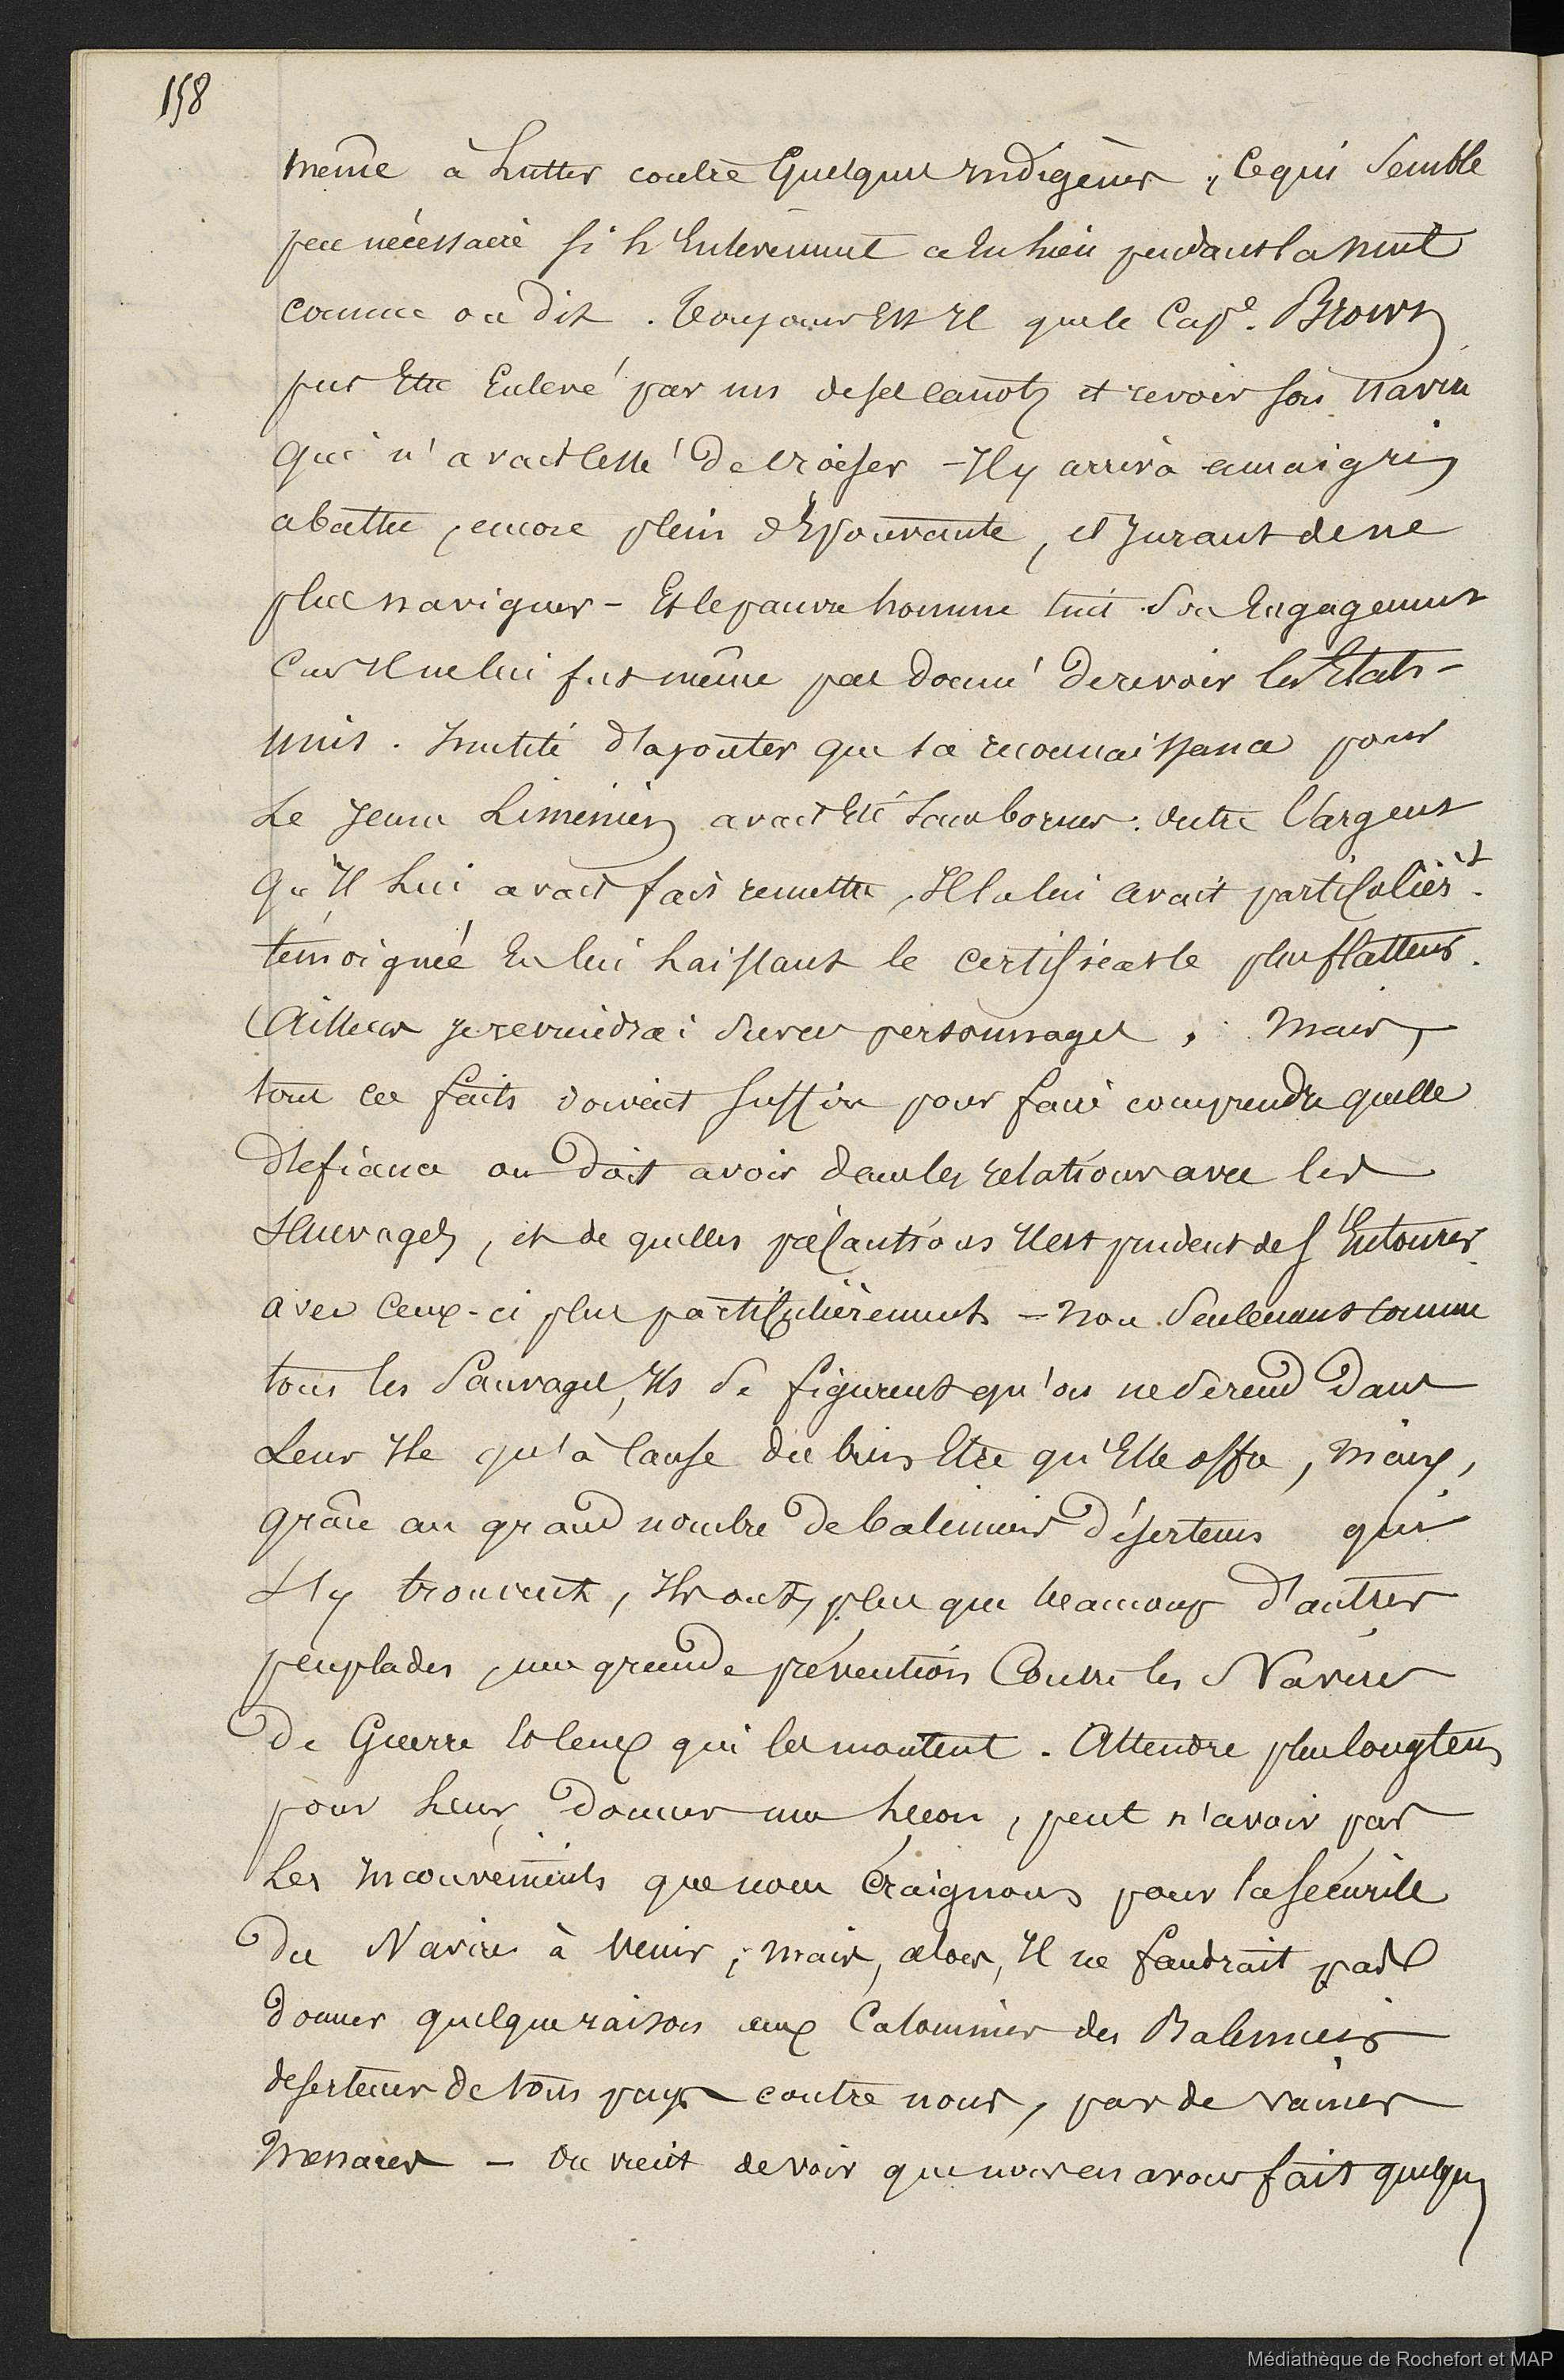 158
même à Lutter contre Quelques Indigènes, Ce qui Semble
peu nécessaire si l'Enlevement a eu lieu pendant la nuit
comme on dit. Toujours Est Il que le Cape. Brown
put Etre Enlevé par un de ses canots et revoir son navire
Qui n'avait Cessé De croiser - Il y arriva amaigri,
abattu, encore plein d'Epouvante, et Jurant de ne
plus naviguer - Et le pauvre homme tint Son Engagement
Car Il ne lui fut même pas Donné De revoir les Etats-
unis. Inutile d'ajouter que sa reconnaissance pour
Le Jeune Liménien avait Eté Sans bornes. Outre l'argent
Qu'Il Lui avait fait remettre, Il la lui avait particulièrt.
témoignée En lui Laissant le certificat le plus flatteur.
Ailleurs je reviendrai Sur ces personnages. Mais,
tous ces faits doivent Suffire pour faire comprendre quelle
Défiance on Doit avoir dans les relations avec les
Sauvages, et de quelles précautions Il est prudent de s'Entourer
avec Ceux-ci plus particulièrement - Non Seulement comme
tous les Sauvages, Ils Se figurent qu'on ne Se rend Dans
Leur Ile qu'à Cause du bien Etre qu'Elle offre, Mais,
grâce au grand nombre De baleiniers Déserteurs qui
S'y trouvent, Ils ont, plus que beaucoup d'autres
peuplades, une grande prévention Contre les Navires
De Guerre Et Ceux qui les montent. Attendre plus longtems
pour Leur Donner une Leçon, peut n'avoir pas
Les Inconvénients que nous Craignons pour la Sécurité
Des Navires à Venir; mais, alors, Il ne faudrait pas
Donner quelque raison aux Calomnies des Baleiniers
déserteurs de tous pays contre nous, par de vaines
Menaces - On vient de voir que nous en avons fait quelques
Médiathèque de Rochefort et MAP